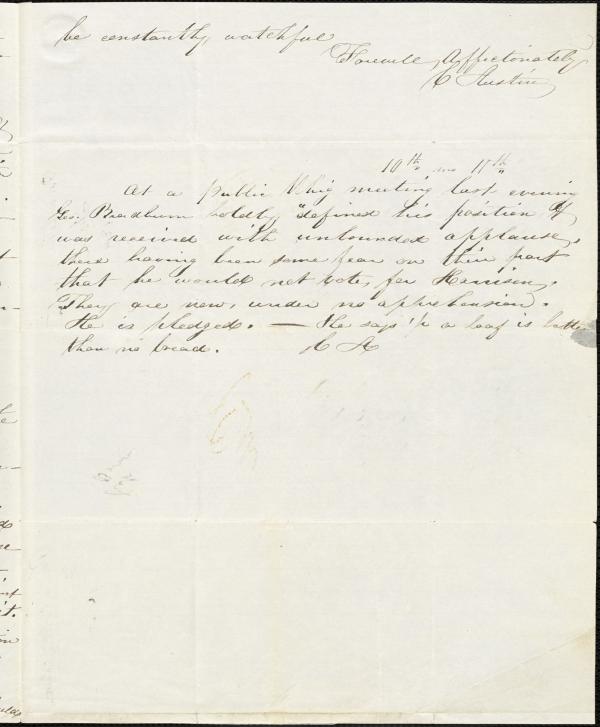 be constantly watchful
Farewell Affectionately
C Austin
10th mo 11th
At a public Whig meeting last evening
Geo. Bradburn boldly "defined his position" &
was received with unbounded applause,
there having been some fear on their part
that he would not vote, for Harrison,
They are now, under no apprehension.
He is pledged. — He says ½ a loaf is better
than no bread. C A